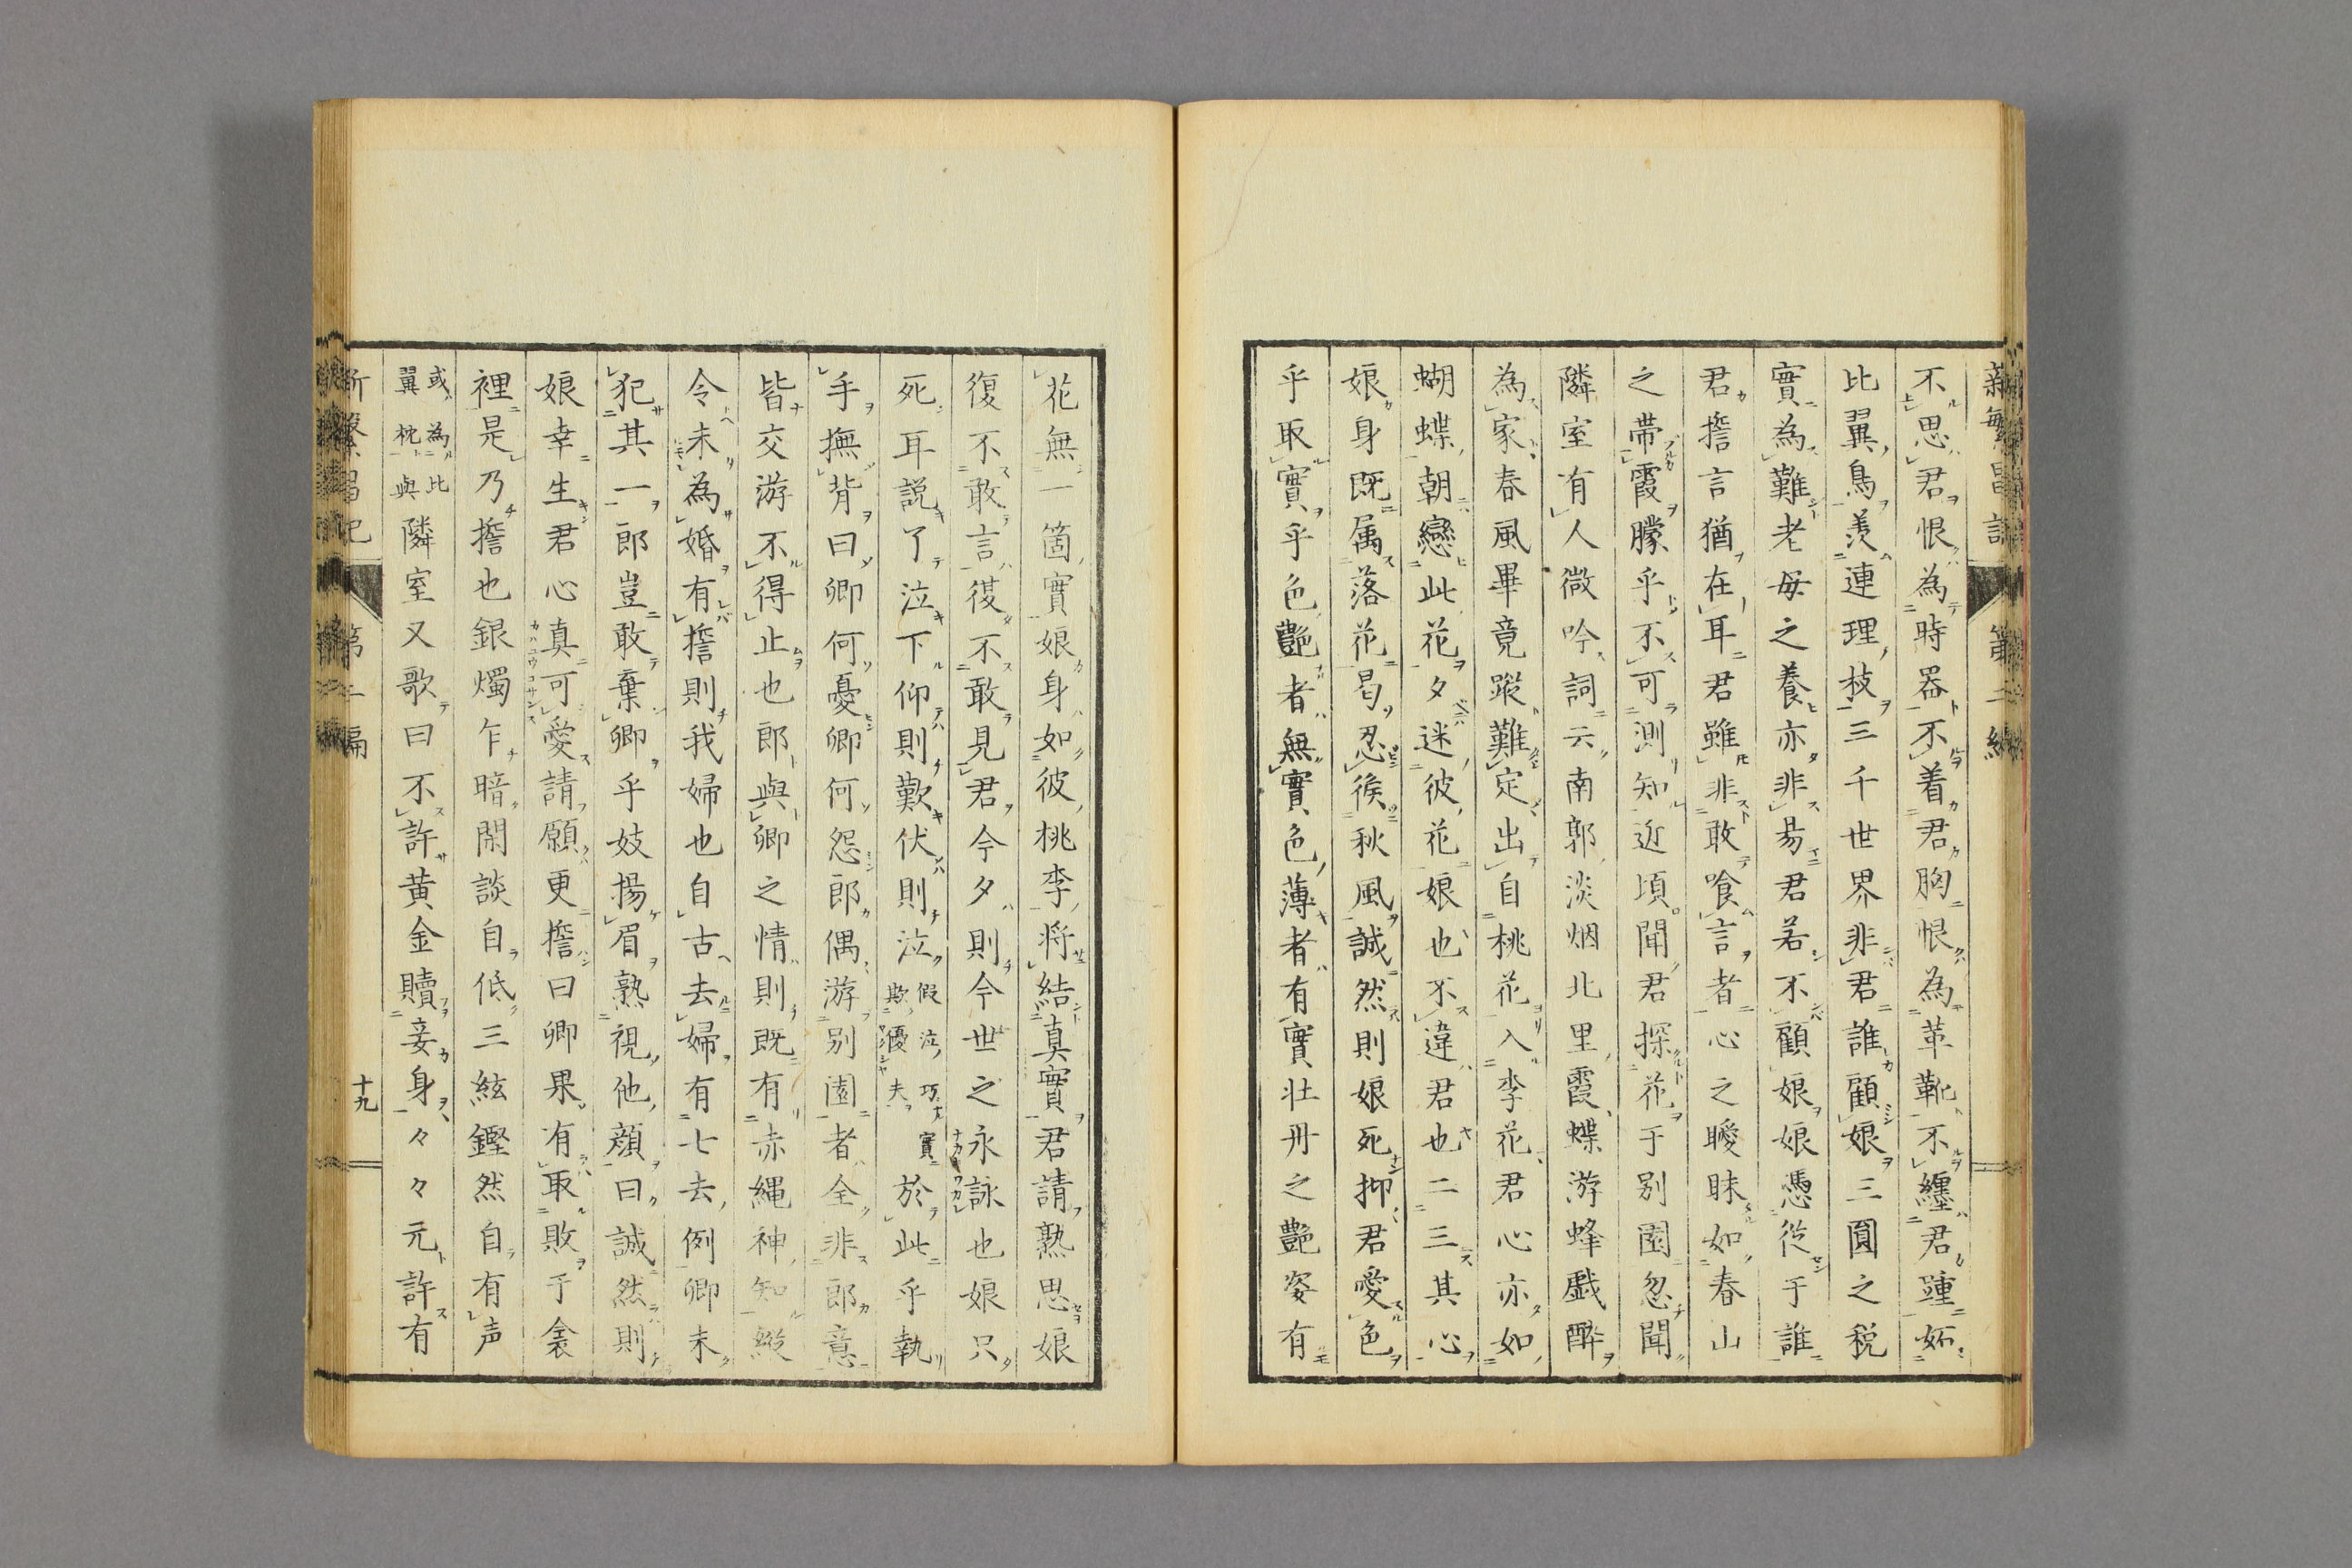 不思君恨為時器不着君胸恨為革靴不纏君踵妬
比翼鳥羨連理枝三千世界非君誰顧娘三圓之税
實為難老母之養亦非易君若不顧娘娘憑從于誰
君擔言猶在耳君雖非敢喰言者心之曖昧如春山
之帯霞朦乎不可測知近頃聞君探花于別園忽聞
隣室有人微吟詞云南郭淡烟北里霞蝶游蜂戯酔
為家春風畢竟蹤難定出自桃花入李花君心亦如
蝴蝶朝戀此花夕迷彼花娘也不違君也二三其心
娘身既属落花曷忍俟秋風誠然則娘死抑君愛色
乎取實乎色艶者無實色薄者有實牡丹之艶姿有
花無一箇實娘身如彼桃李将結真實君請熟思娘
復不敢言復不敢見君今夕則今世之永訣也娘只
死耳説了泣下仰則歎伏則泣假泣巧欺優夫實於此乎執
手撫背曰卿何憂卿何怨郎偶游別園者全非郎意
皆交游不得止也郎與卿之情則既有赤縄神知縦
令未為婚有擔則我婦也自古去婦有七去例卿未
犯其一郎豈敢棄卿乎妓揚眉熟視他顔曰誠然則
娘幸生君心真可愛請願更擔曰卿果有取敗于衾
裡是乃擔也銀燭乍暗閑談自低三絃鏗然自有声
或為比翼枕與隣室又歌曰不許黄金贖妾身々々元許有
新繁昌記
第二編
十九